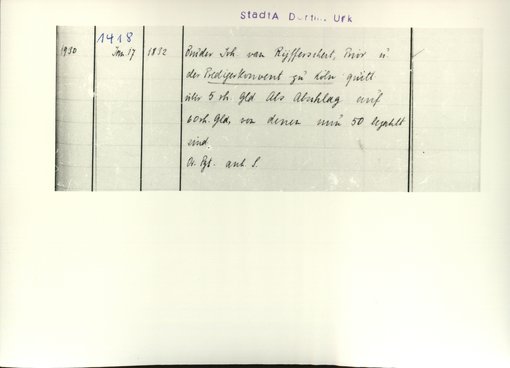 StadtA Dortm. Urk
1418
1930 Jun. 17 1832 Bruder Joh van Rijfferschert, Prior u
der Predigerkonvent zu Köln quitt
über 5 rh. Gld als Abschlag auf
60 rh. Gld, von denen nun 50 bezahlt
sind.
Or. Pgt. anh. S.